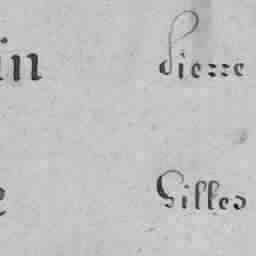 in Pierre
e Gilles